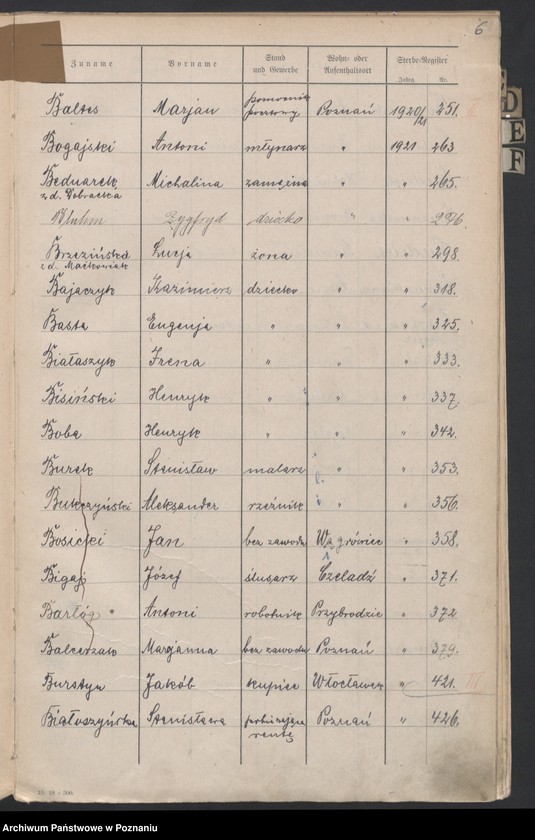 6
Zuname Vorname Stand und Gewerbe Wohn- oder Aufenthaltsort Sterbe-Register
Jahrg. Nr.
Baltes Marjan pomocnik pocztowy Poznań 1920/21 251. II
Bogajski Antoni młynarz " 1921 263
Bednarek z d. Dobracka Michalina zamężna " " 265.
Bluhm Zygfryd dziecko " " 296.
Brzezińska z d. Maćkowiak Łucja żona " " 298.
Bajaczyk Kazimierz dziecko " " 318.
Basta Eugenja " " " 325.
Białaszyk Irena " " " 333.
Bisiński Henryk " " " 337.
Boba Henryk " " " 342.
Burek Stanisław malarz " " 353.
Bukczyński Aleksander rzeźnik " " 356.
Bosicki Jan bez zawodu Wągrówiec " 358.
Bigaj Józef ślusarz Czeladź " 371.
Barłóg Antoni robotnik Przybrodzie " 372
Balcerzak Marjanna bez zawodu Poznań " 379.
Bursztyn Jakób kupiec Włocławek " 421.
Białoszyńska Stanisława pobierająca rentę Poznań " 426.
13. 18 - 500.
D
E
F
Archiwum Państwowe w Poznaniu